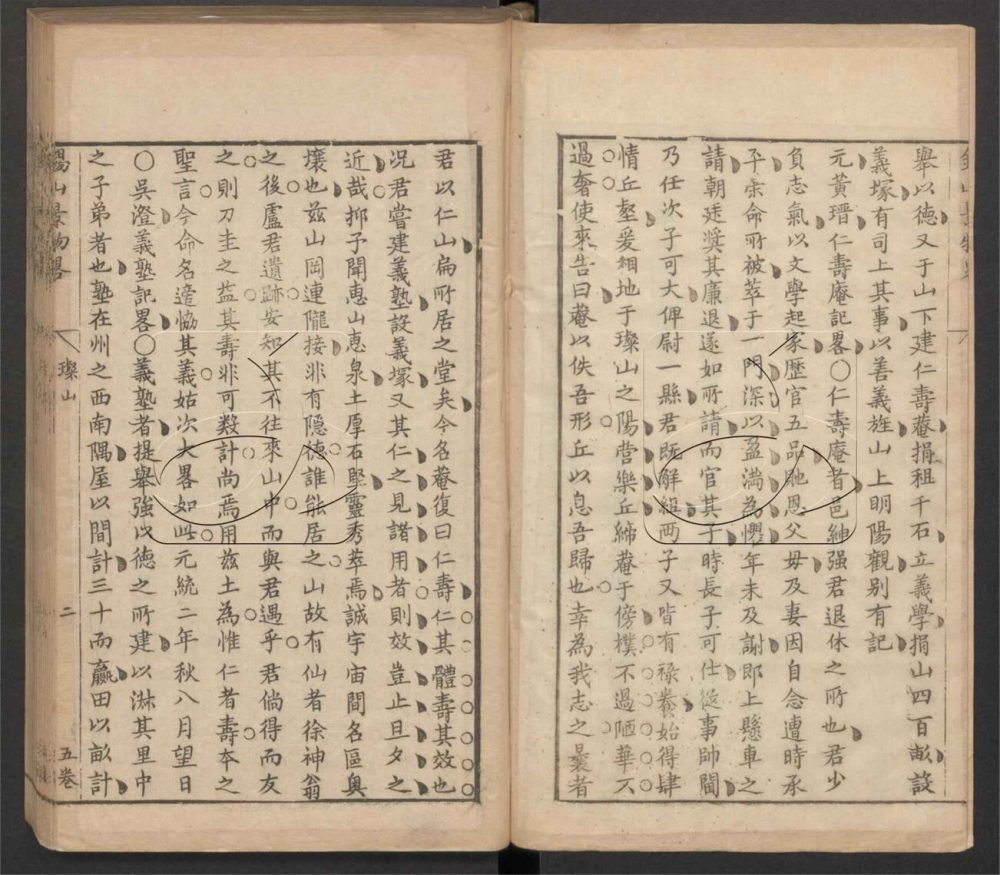 舉以德又于山下建仁壽菴捐租千石立義學捐山四百畝設
義塚有司上其事以善義旌山上明陽觀别有記
元黃瑨仁壽庵記畧○仁壽庵者邑紳强君退休之所也君少
負志氣以文學起家歷官五品貤恩父母及妻因自念遭時承
平宗命所被萃于一門深以盈滿為懼年未及謝即上懸車之
請朝廷奬其廉退遂如所請而官其子時長子可仕從事帥閫
乃任次子可大俾尉一縣君既解組两子又皆有祿養始得肆
情丘壑爰相地于璨山之陽營樂丘締菴于傍樸不過陋華不
過奢使來告曰菴以佚吾形丘以息吾歸也幸為我志之曩者
君以仁山扁所居之堂矣今名菴復曰仁壽仁其體壽其效也
况君嘗建義塾設義塚又其仁之見諸用者則效豈止旦夕之
近哉抑予聞惠山惠泉土厚石堅靈秀萃焉誠宇宙間名區奥
壤也兹山岡連隴接非有隱德誰能居之山故有仙者徐神翁
之後盧君遺跡安知其不往來山中而與君遇乎君倘得而友
之則刀圭之益其壽非可数計尚焉用兹土為惟仁者壽本之
聖言今命名遻恊其義姑次大畧如此元統二年秋八月望日
○吳澄義塾記畧○義塾者提舉強以德之所建以淋其里中
之子弟者也塾在州之西南隅屋以間計三十而贏田以畝計
錫山景物畧
璨山
二
五巻